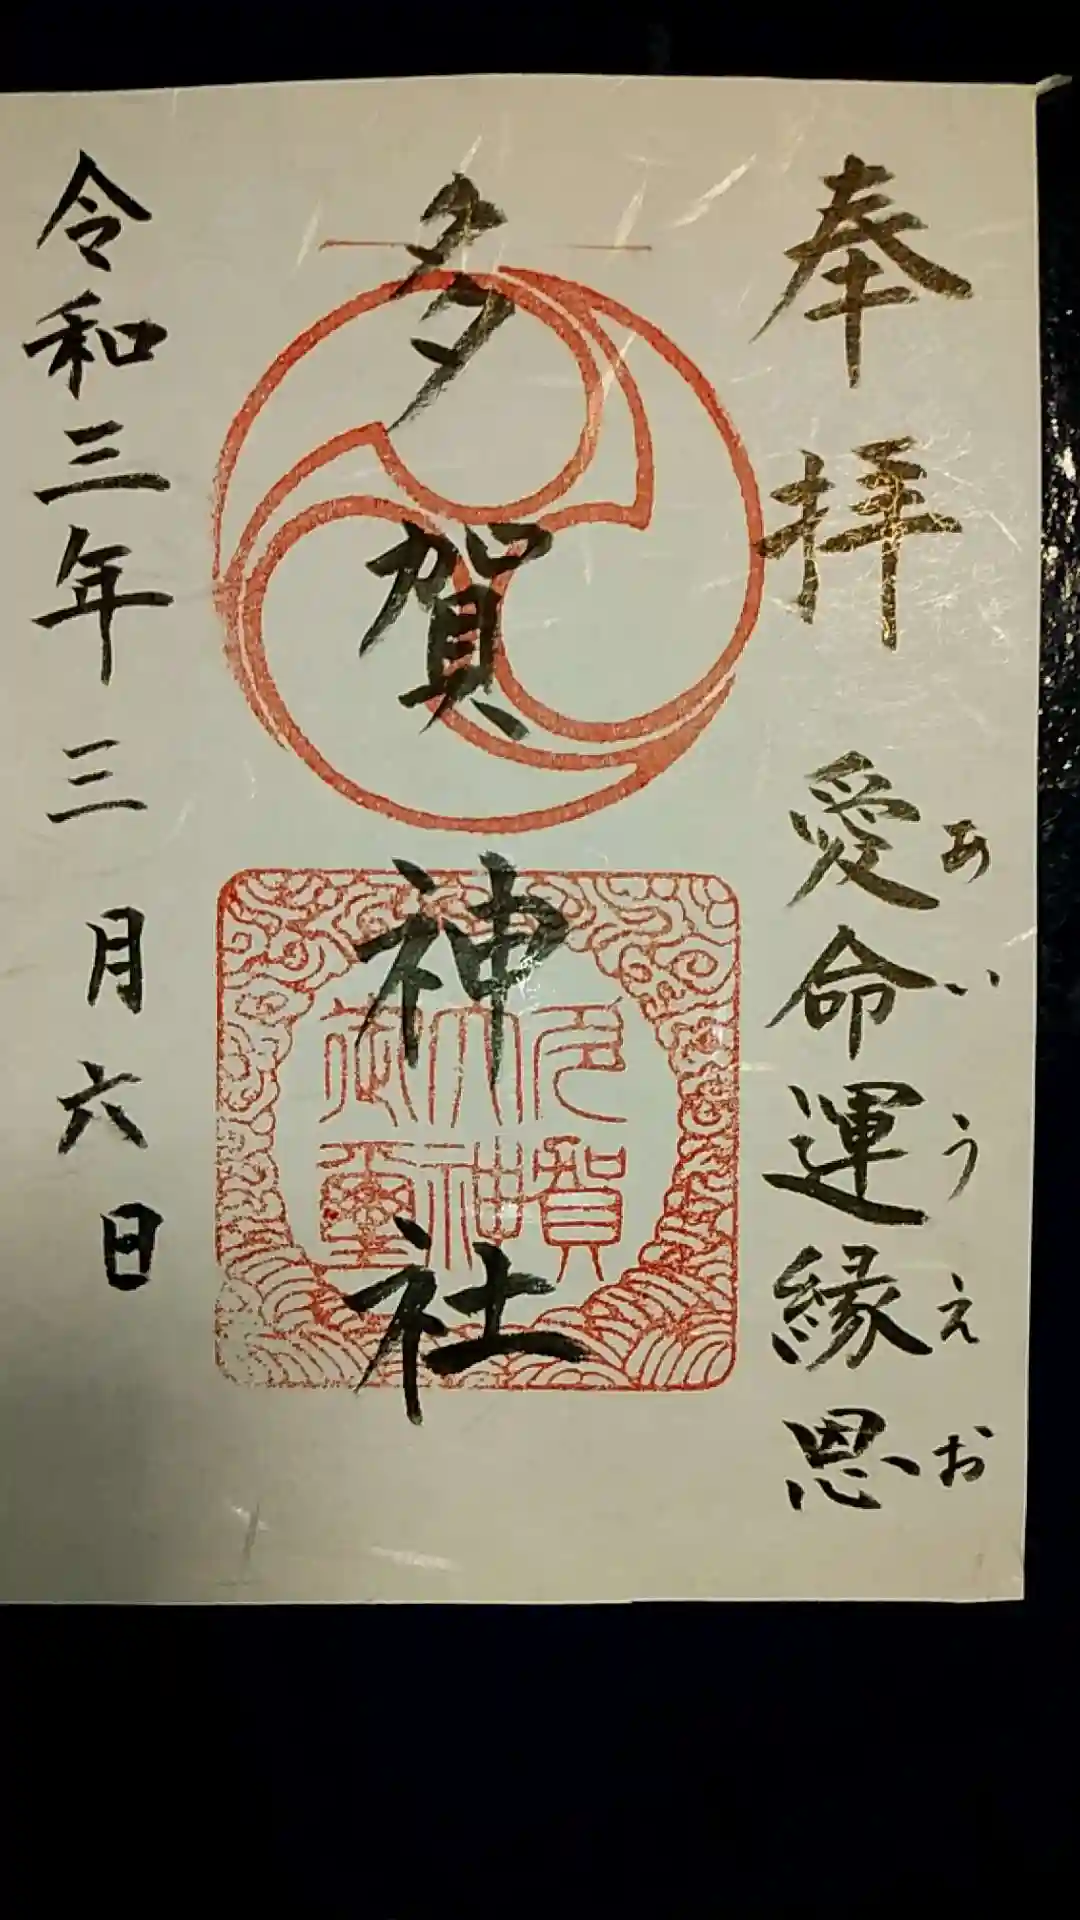 奉拝
愛命運縁恩
あいうえお
多賀神社
多賀
大神
御璽
令和三年三月六日